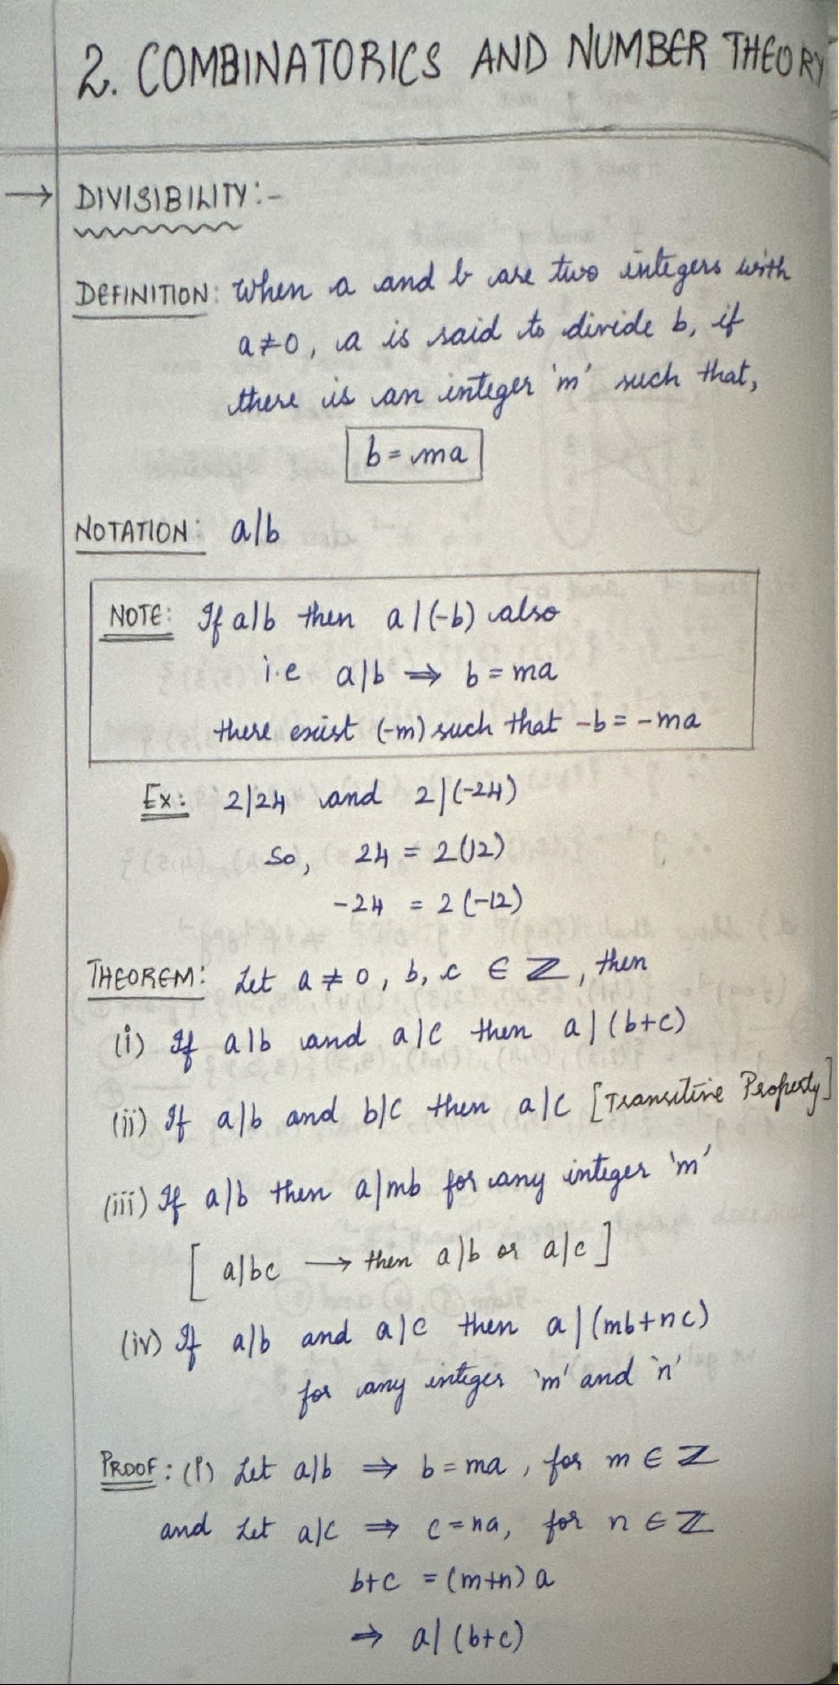 2. COMBINATORICS AND NUMBER THEORY
→ DIVISIBILITY:-
DEFINITION: When a and b are two integers with
a≠0, a is said to divide b, if
there is an integer 'm' such that,
b = ma
NOTATION: a|b
NOTE: If a|b then a|(-b) also
i.e a|b ⇒ b = ma
there exist (-m) such that -b = -ma
Ex: 2|24 and 2|(-24)
So, 24 = 2(12)
-24 = 2(-12)
THEOREM: Let a ≠ 0, b, c ∈ ℤ, then
(i) If a|b and a|c then a|(b+c)
(ii) If a|b and b|c then a|c [Transitive Property]
(iii) If a|b then a|mb for any integer 'm'
[a|bc → then a|b or a|c]
(iv) If a|b and a|c then a|(mb+nc)
for any integer 'm' and 'n'
PROOF: (i) Let a|b ⇒ b = ma, for m ∈ ℤ
and Let a|c ⇒ c = na, for n ∈ ℤ
b+c = (m+n) a
⇒ a|(b+c)